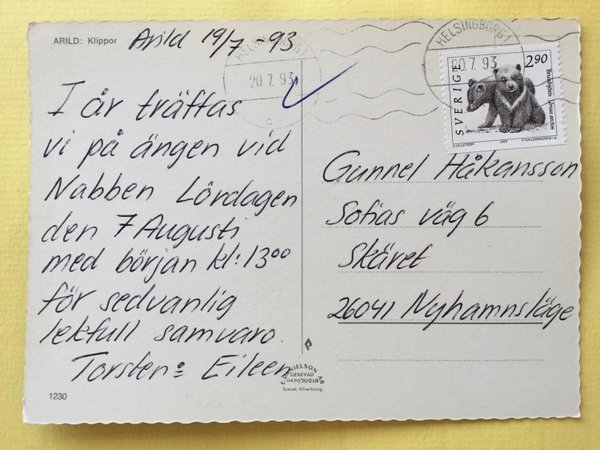 ARILD: Klippor
Arild 19/7 93
I år träffas
vi på ängen vid
Nabben Lördagen
den 7 Augusti
med början kl: 13⁰⁰
för sedvanlig
lekfull samvaro.
Torsten o Eileen
1230
HELSINGBORG 1
20 7. 93
HELSINGBORG 1
20 7. 93
SVERIGE
2.90
Gunnel Håkansson
Sofias väg 6
Skäret
26041 Nyhamnsläge
GENEVAD
Svensk tillverkning